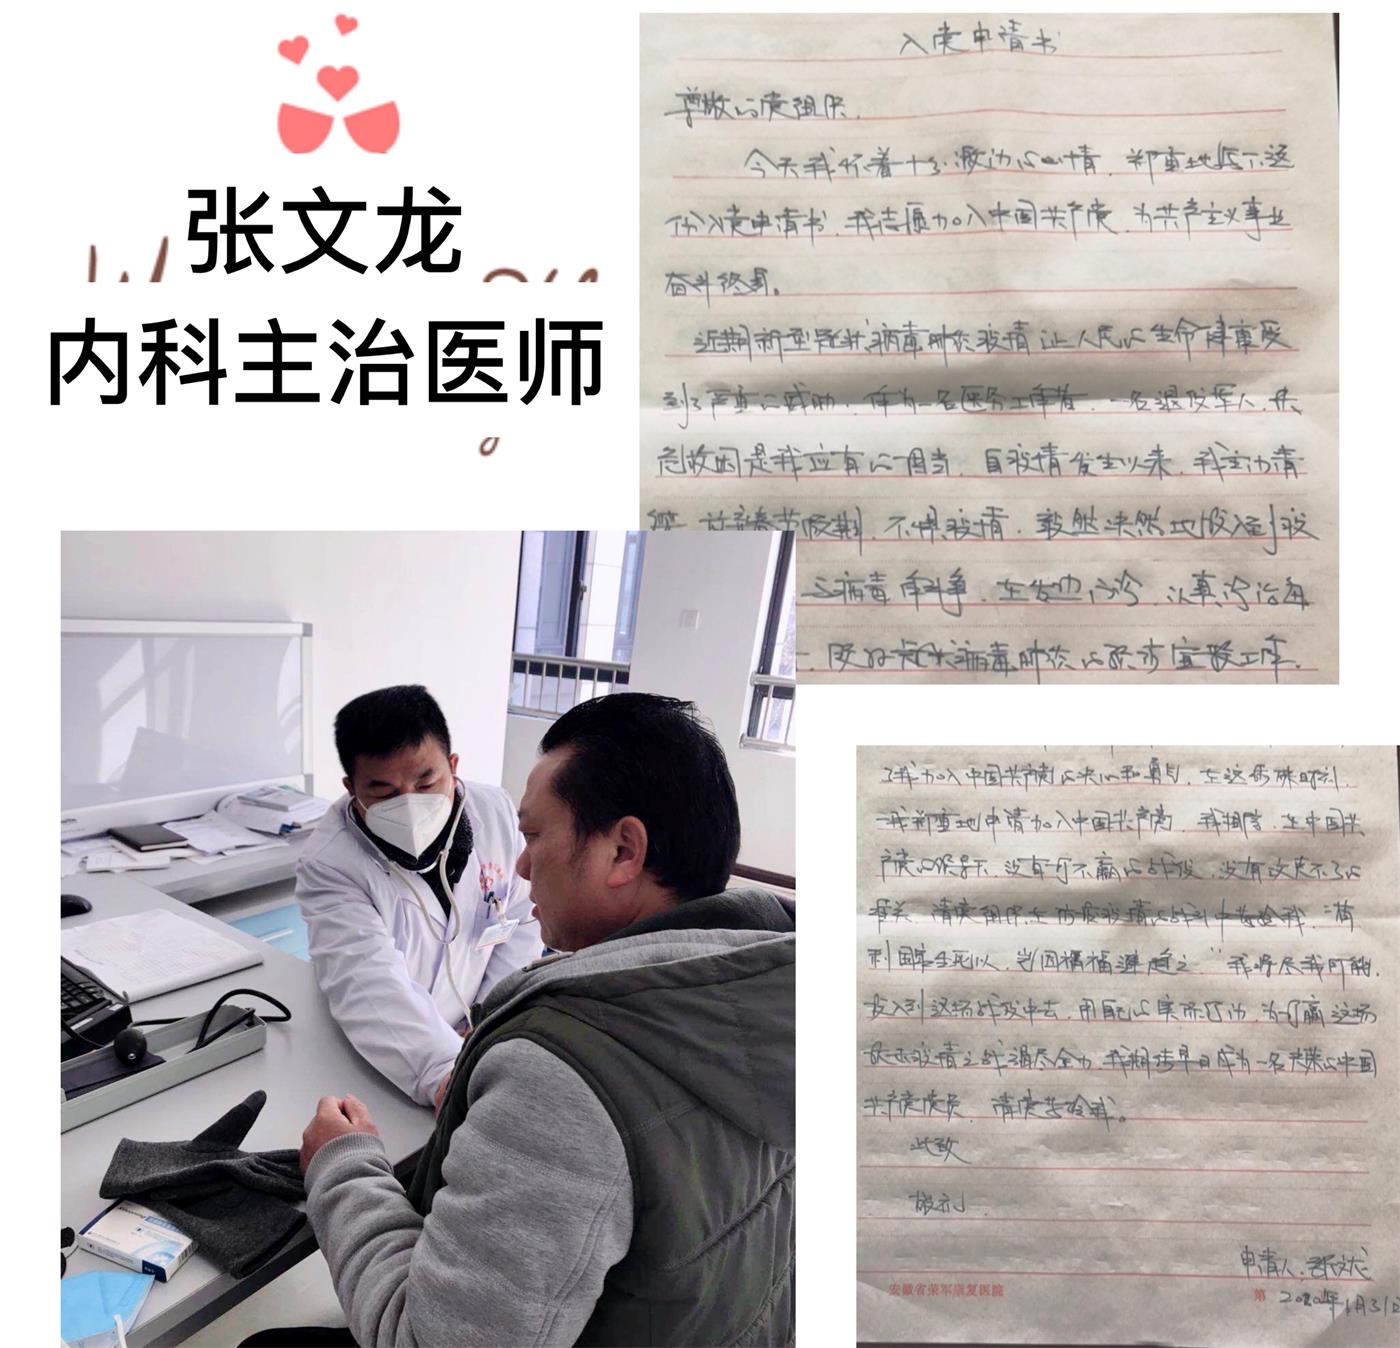 张文龙
内科主治医师
入党申请书
尊敬的党组织.
今天我怀着十分激动的心情.郑重地递下这
份入党申请书.我志愿加入中国共产党.为共产主义事业
奋斗终身。
近期新型冠状病毒肺炎疫情让人民的生命健康受
到了严重的威胁.作为一名医务工作者.一名退役军人.救
危救困是我应有的担当.自疫情发生以来.我主动请
放弃春节假期.不惧疫情.毅然决然地投入到疫
与病毒作斗争.在发热门诊.认真诊治每
.做好冠状病毒肺炎的医务宣教工作.
了我加入中国共产党的决心和勇气.在这特殊时刻.
我郑重地申请加入中国共产党.我相信.在中国共
产党的领导下.没有打不赢的战役.没有攻克不了的
难关.请党组织在防控疫情的战斗中考验我."苟
利国家生死以.岂因祸福避趋之."我将尽我所能.
投入到这场战役中去.用自己的实际行动.为打赢这场
疫情之战竭尽全力.我期待早日成为一名光荣的中国
共产党党员.请党考验我。
此致
敬礼.
申请人:张文龙
安徽省荣军康复医院
第
2020年1月31日